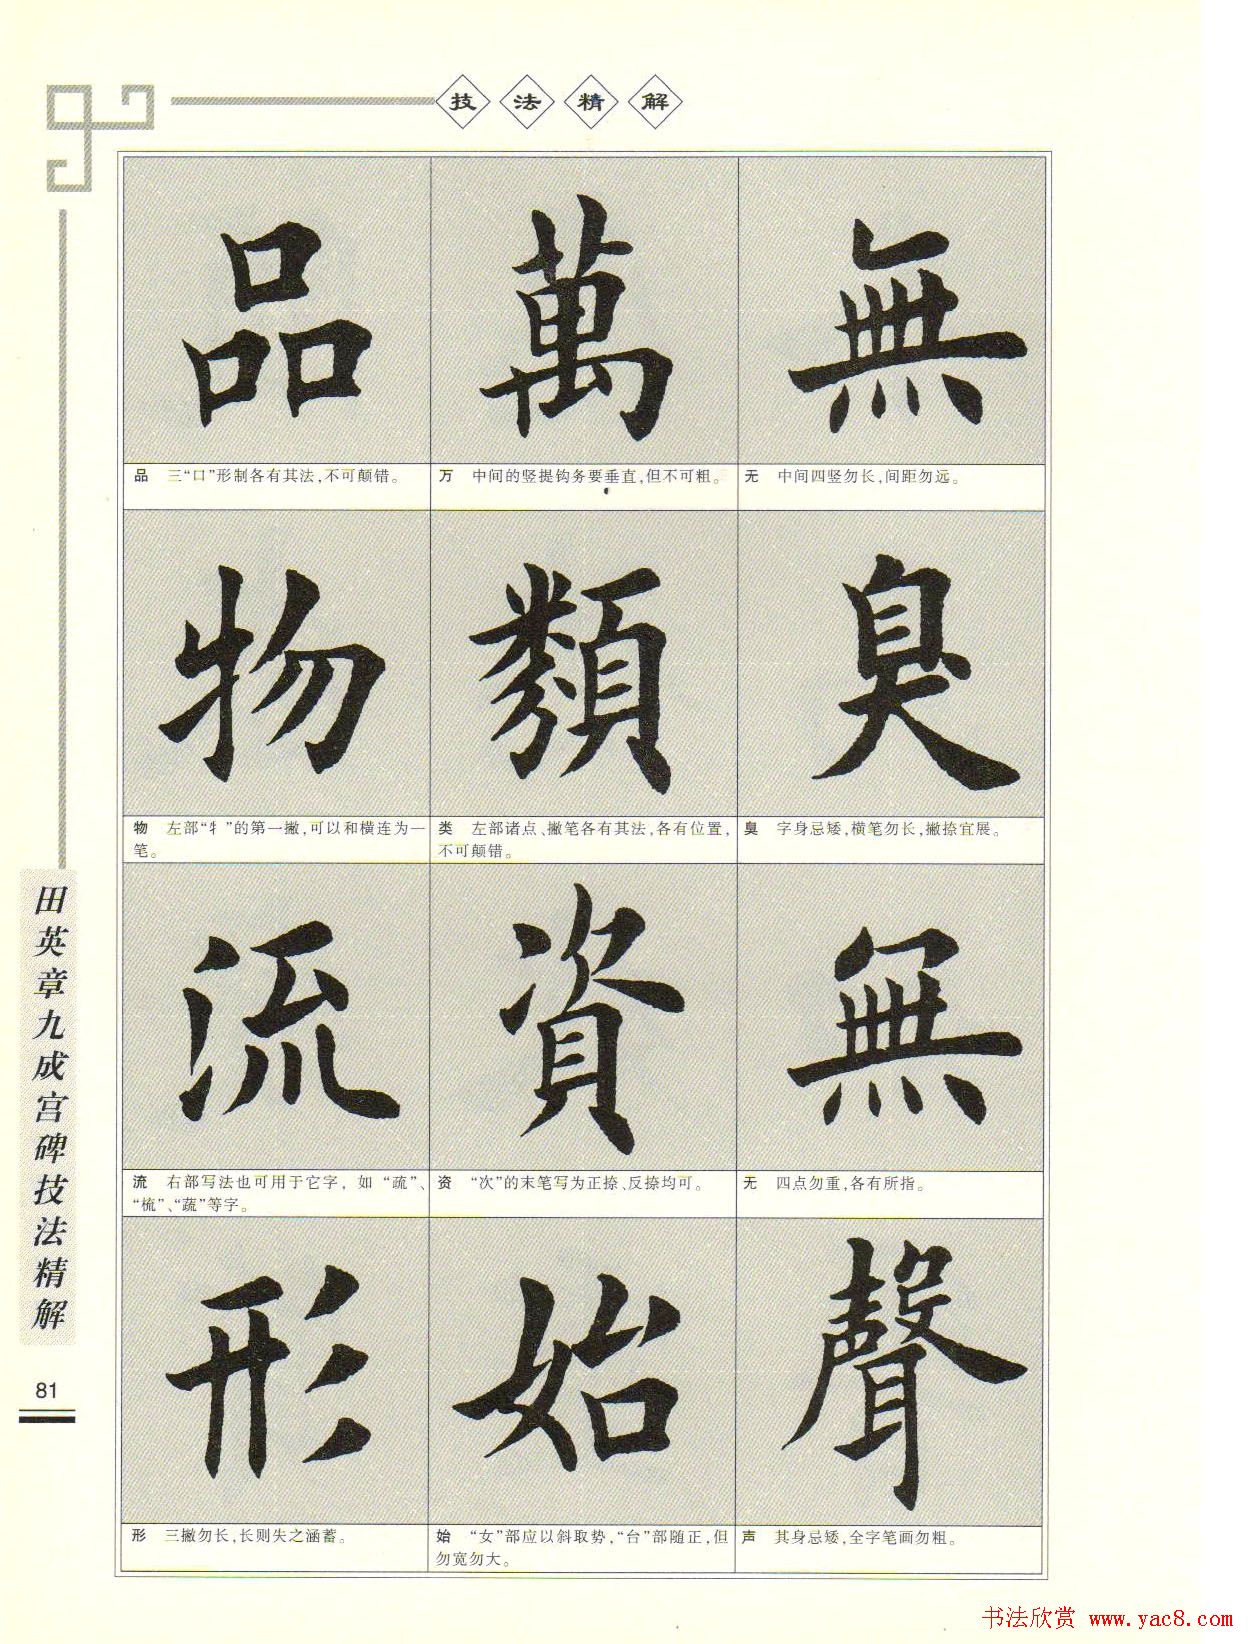 技法精解
無 萬 品
品 三“口”形制各有其法,不可颠错。
万 中间的竖提钩务要垂直,但不可粗。
无 中间四竖勿长,间距勿远。
臭 類 物
物 左部“牜”的第一撇,可以和横连为一
笔。
类 左部诸点、撇笔各有其法,各有位置,
不可颠错。
臭 字身忌矮,横笔勿长,撇捺宜展。
無 資 流
流 右部写法也可用于它字，如“疏”、
“梳”、“蔬”等字。
资 “次”的末笔写为正捺、反捺均可。
无 四点勿重,各有所指。
聲 始 形
形 三撇勿长,长则失之涵蓄。
始 “女”部应以斜取势,“台”部随正,但
勿宽勿大。
声 其身忌矮,全字笔画勿粗。
田英章九成宫碑技法精解
81
书法欣赏 www.yac8.com